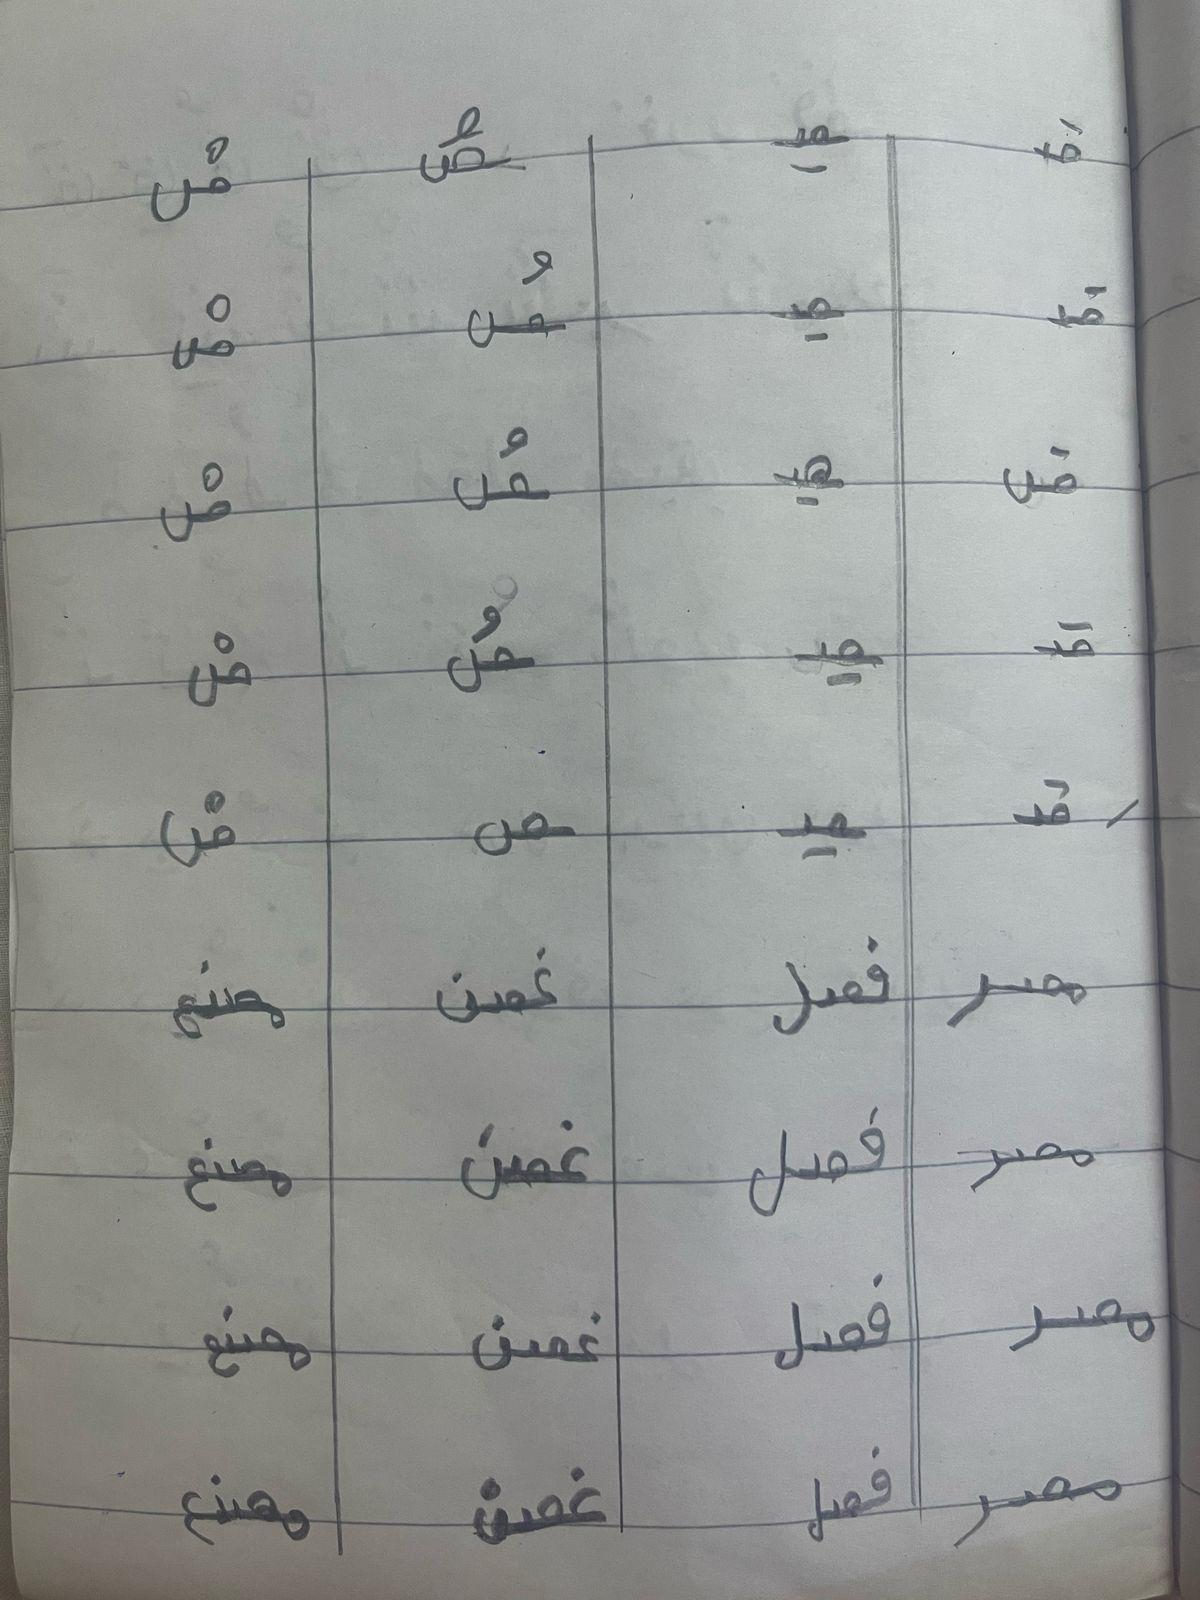 صَـ صِـ صُ صْ
صَـ صِـ صُ صْ
صَ صِـ صُ صْ
صَـ صِـ صُ صْ
صَـ صِـ ص صْ
مصر فصل غصن مصنع
مصر فصل غصن مصنع
مصر فصل غصن مصنع
مصر فصل غصن مصنع